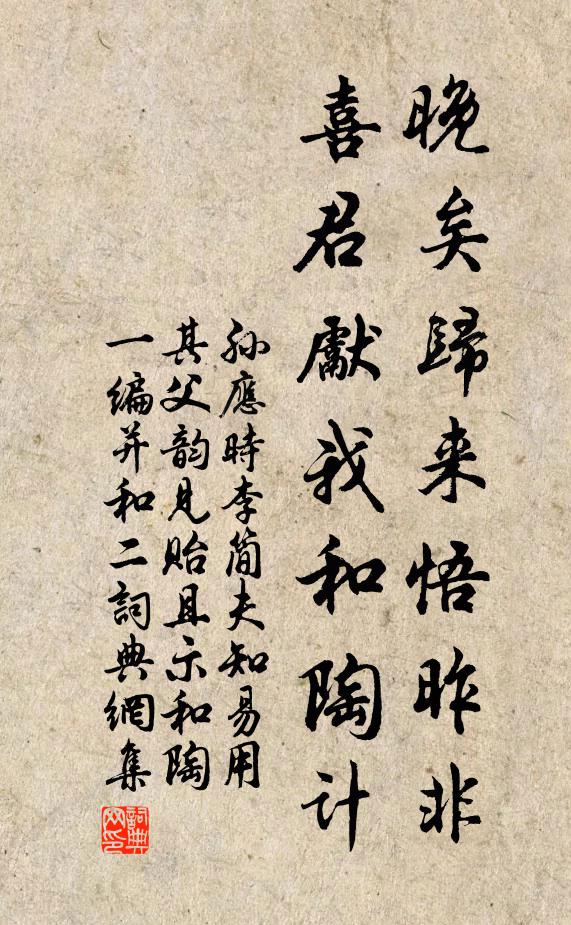 晚矣歸来悟昨非
喜君獻我和陶计
孙應時李简夫知易用
其父韵见贻且示和陶
一编并和二詞典網集
詞典网印